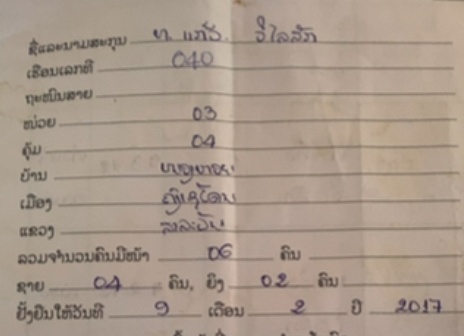 ຊື່ແລະນາມສະກຸນ ທ. ແກ້ວ. ວິໄລສັກ
ເຮືອນເລກທີ 040
ຖະໜົນສາຍ
ໜ່ວຍ 03
ຄຸ້ມ 04
ບ້ານ
ເມືອງ
ແຂວງ ສາລະວັນ
ລວມຈຳນວນຄົນມີໜ້າ 06 ຄົນ
ຊາຍ 04 ຄົນ, ຍິງ 02 ຄົນ
ຢັ້ງຢືນໃຫ້ວັນທີ 9 ເດືອນ 2 ປີ 2017